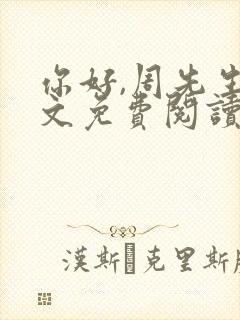 你好,周先生
文免费閱讀
漢斯 克里斯